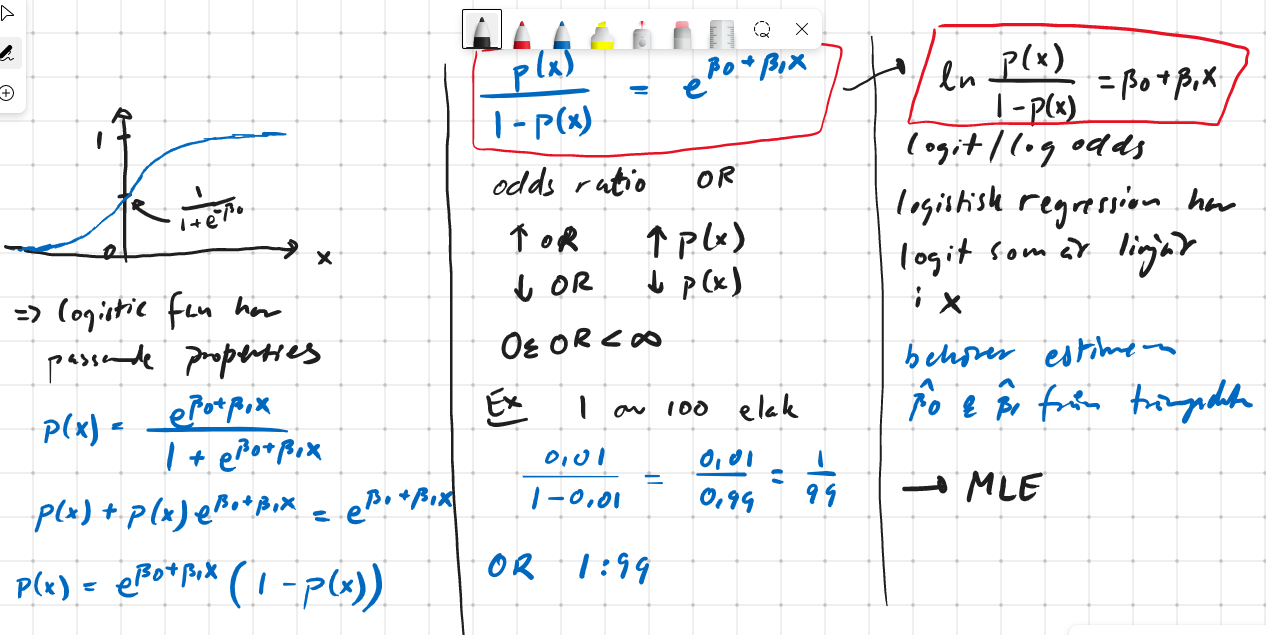 1
1 / 1 + e^-β0
0
x
=> logistic fcn har
passande properties
p(x) = e^β0+β1x / 1 + e^β0+β1x
p(x) + p(x) e^β0+β1x = e^β0+β1x
p(x) = e^β0+β1x (1 - p(x))
p(x) / 1 - p(x) = e^β0+β1x
odds ratio OR
↑ OR ↑ p(x)
↓ OR ↓ p(x)
0 ≤ OR < ∞
Ex 1 av 100 elak
0,01 / 1-0,01 = 0,01 / 0,99 = 1 / 99
OR 1:99
ln p(x) / 1 - p(x) = β0 + β1x
logit / log odds
logistisk regression har
logit som är linjär
i x
behöver estimera
β̂0 & β̂1 från träningsdata
→ MLE